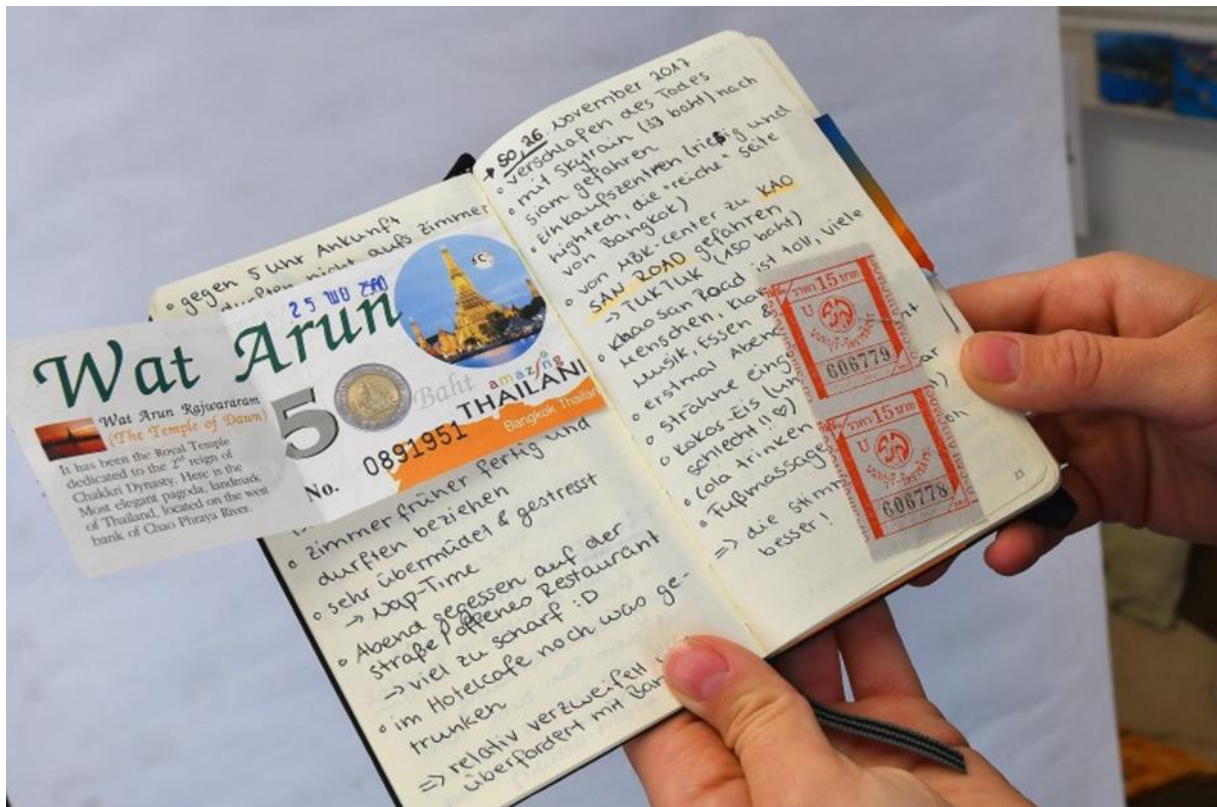 • gegen 5 Uhr Ankunft
nicht aufs Zimmer
25 พย 2560
Wat Arun
Wat Arun Rajwararam
(The Temple of Dawn)
It has been the Royal Temple
dedicated to the 2nd reign of
Chakkri Dynasty. Here is the
Most elegant pagoda, landmark
of Thailand, located on the west
bank of Chao Phraya River.
50 Baht
No. 0891951
amazing
THAILAN
Bangkok Thailan
früher fertig und
• Zimmer
durften beziehen
• sehr übermüdet & gestresst
→ Nap-Time
• Abend gegessen auf der
Straße / offenes Restaurant
→ viel zu scharf :D
• im Hotelcafe noch was ge-
trunken
=> relativ verzweifelt
überfordert mit
→ SO, 26. November 2017
• verschlafen des Todes
• mit Skytrain (33 baht) nach
Siam gefahren
• Einkaufszentren (riesig und
hightech, die "reiche" Seite
von Bangkok)
• von MBK-Center zu KAO
SAN ROAD gefahren
→ TUKTUK (150 baht)
• Khao San Road ist toll, viele
Menschen,
Musik, Essen &
• erstmal
• Strähne
• Kokos-Eis
schlecht!! ♡)
• Cola trinken
• Fußmassage
=> die
besser!
ราคา 15 บาท
606779
ราคา 15 บาท
606778
23